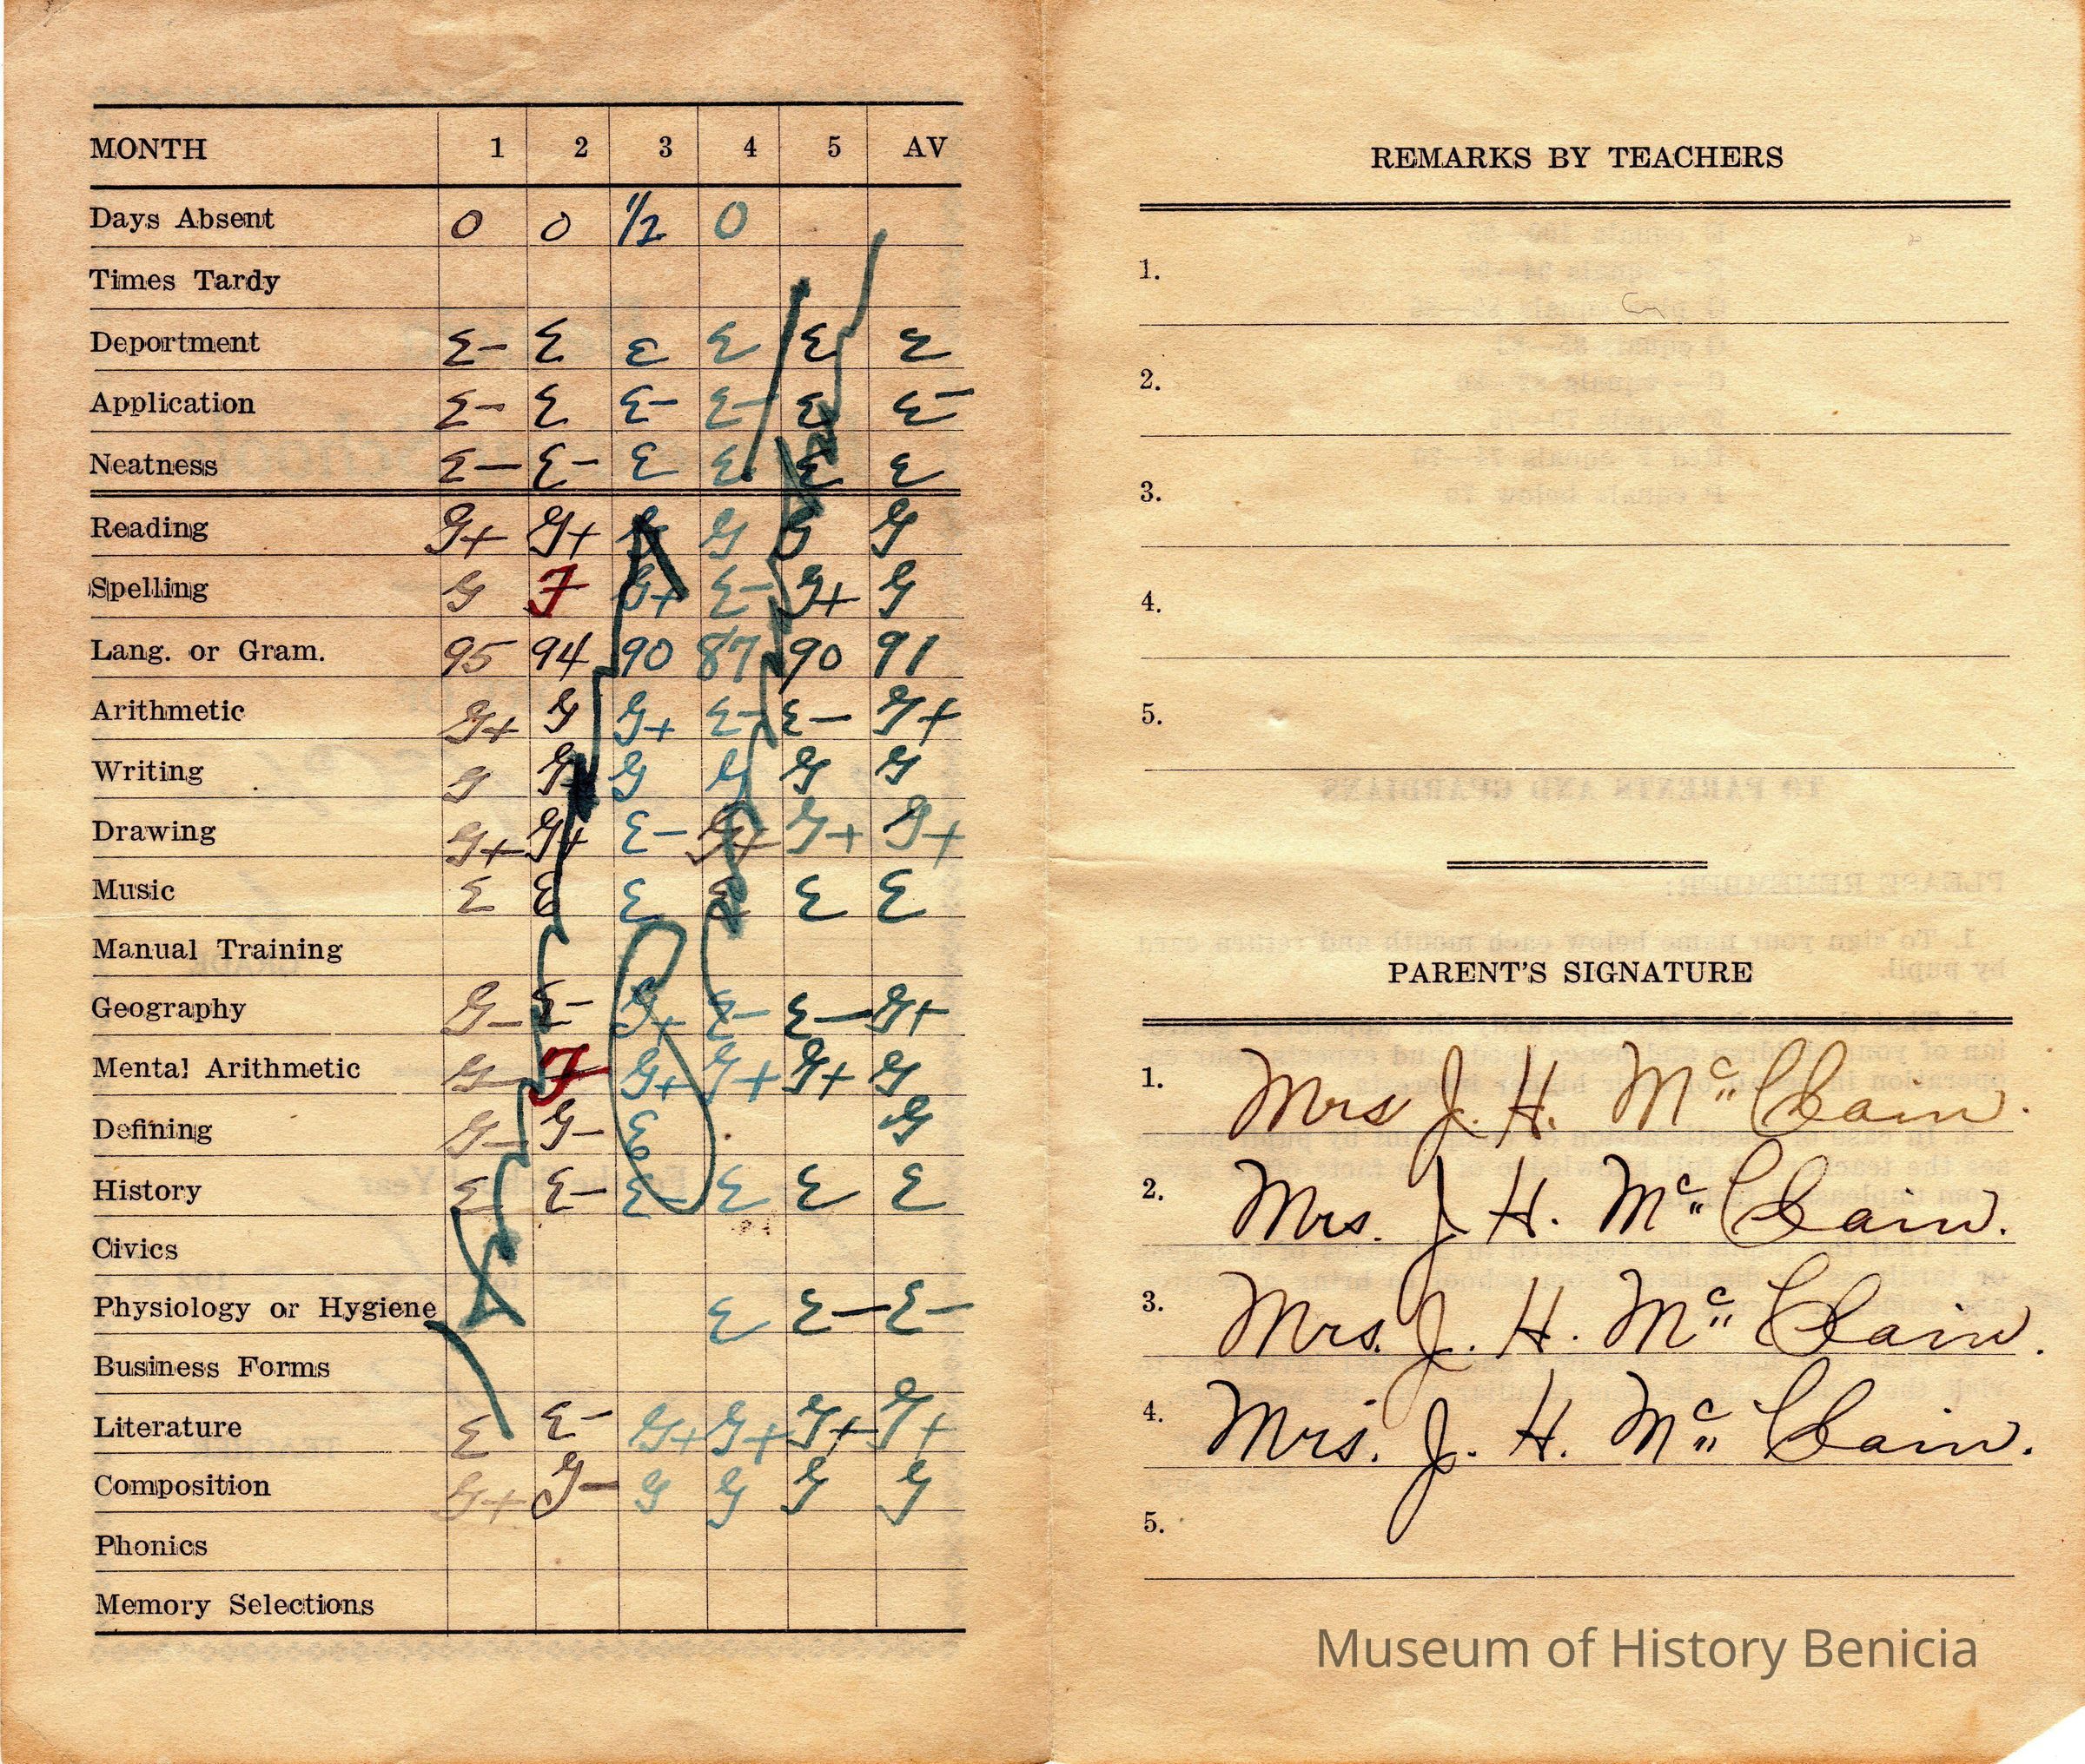 MONTH 1 2 3 4 5 AV
Days Absent 0 0 1/2 0
Times Tardy
Deportment E- E E E E E
Application E- E E- E- E E-
Neatness E- E- E E E E
Reading G+ G+ G G G
Spelling G F G+ E- G+ G
Lang. or Gram. 95 94 90 87 90 91
Arithmetic G+ G G+ E- E- G+
Writing G G G G G
Drawing G+ G+ E- G+ G+ G+
Music E E E E E E
Manual Training
Geography G- E- G+ E- E- G+
Mental Arithmetic G- F G+ G+ G+ G
Defining G- G- E G
History E E- E- E E E
Civics
Physiology or Hygiene E E- E-
Business Forms
Literature E E- G+ G+ G+ G+
Composition G+ G- G G G G
Phonics
Memory Selections
REMARKS BY TEACHERS
1.
2.
3.
4.
5.
PARENT'S SIGNATURE
1. Mrs J. H. McClain.
2. Mrs. J H. McClain.
3. Mrs. J. H. McClain.
4. Mrs. J. H. McClain.
5.
Museum of History Benicia